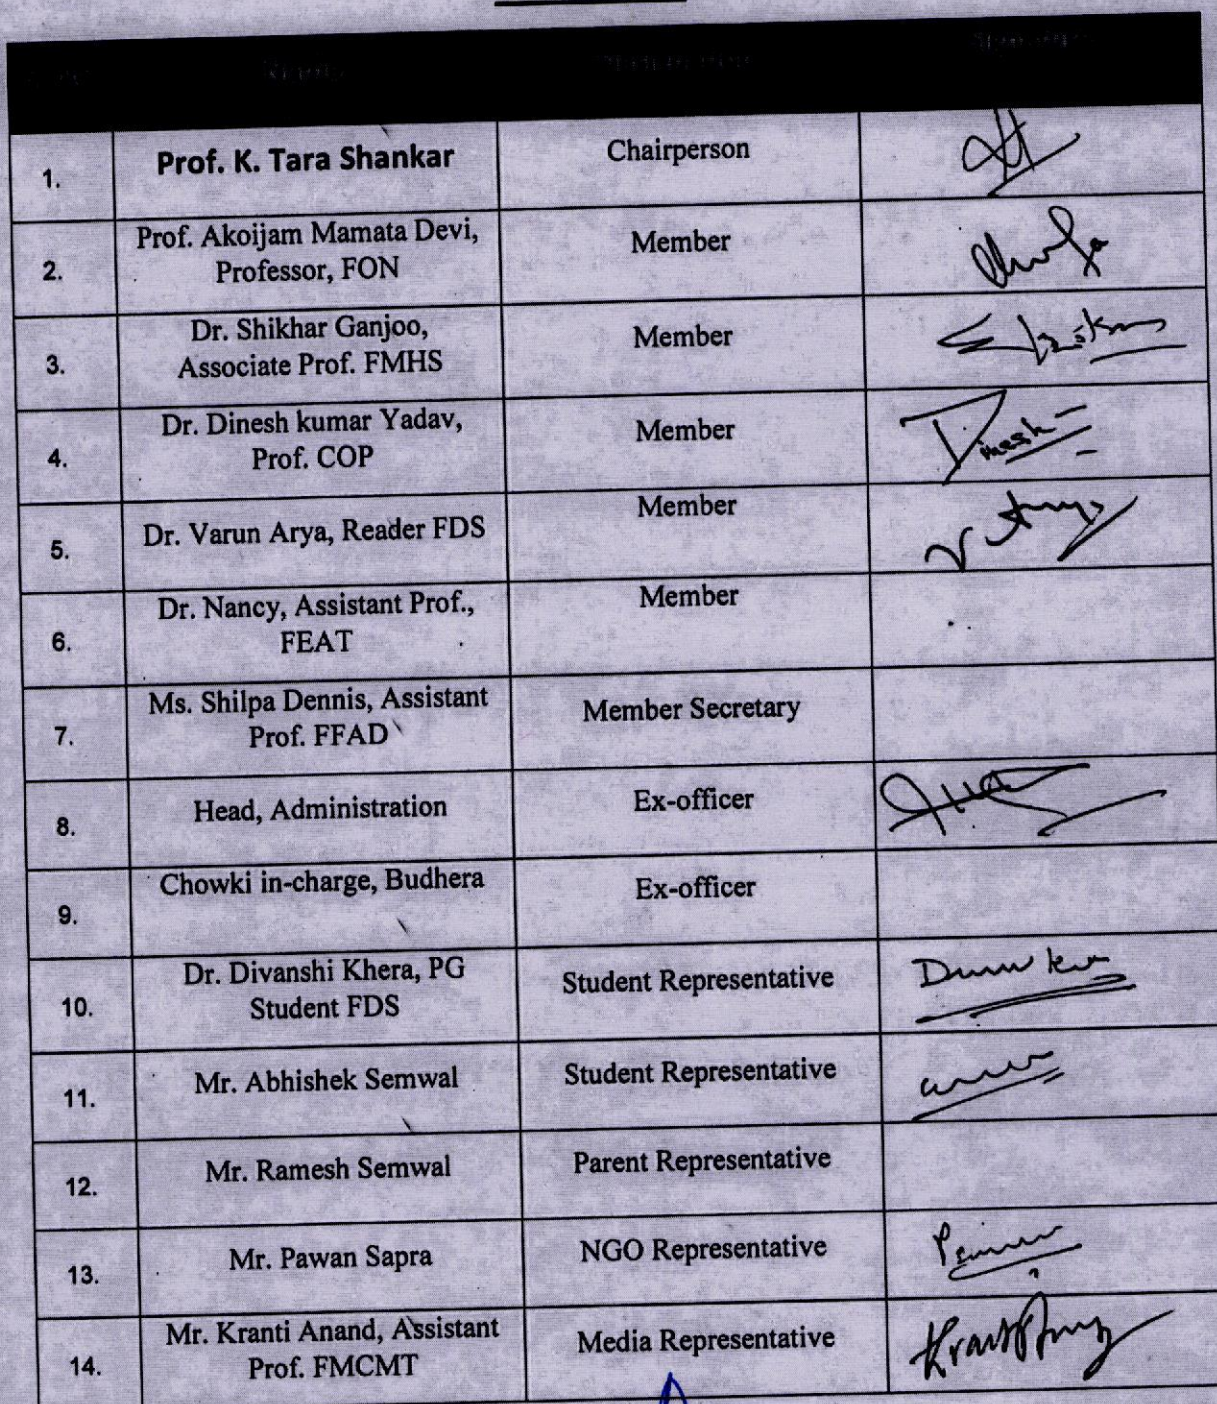 Name
Signature
1.
Prof. K. Tara Shankar
Chairperson
2.
Prof. Akoijam Mamata Devi,
Professor, FON
Member
3.
Dr. Shikhar Ganjoo,
Associate Prof. FMHS
Member
4.
Dr. Dinesh kumar Yadav,
Prof. COP
Member
Dinesh
5.
Dr. Varun Arya, Reader FDS
Member
6.
Dr. Nancy, Assistant Prof.,
FEAT
Member
7.
Ms. Shilpa Dennis, Assistant
Prof. FFAD
Member Secretary
8.
Head, Administration
Ex-officer
9.
Chowki in-charge, Budhera
Ex-officer
10.
Dr. Divanshi Khera, PG
Student FDS
Student Representative
11.
Mr. Abhishek Semwal
Student Representative
12.
Mr. Ramesh Semwal
Parent Representative
13.
Mr. Pawan Sapra
NGO Representative
14.
Mr. Kranti Anand, Assistant
Prof. FMCMT
Media Representative